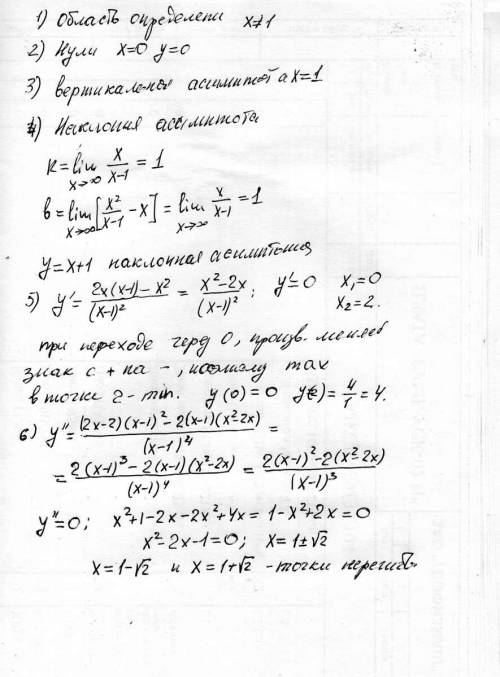 1) Область определени x≠1
2) Нули x=0 y=0
3) вертикальная асимптота x=1
4) Наклонная ассимптота
k=lim x→∞ x/(x-1) = 1
b=lim x→∞ [x²/(x-1) - x] = lim x→∞ x/(x-1) = 1
y=x+1 наклонная асимптота
5) y'= (2x(x-1)-x²)/(x-1)² = (x²-2x)/(x-1)² ; y'=0 x₁=0
x₂=2.
при переходе через 0, произв. меняет
знак с + на -, поэтому max
в точке 2 - min. y(0)=0 y(2)=4/1=4.
6) y''= ((2x-2)(x-1)²-2(x-1)(x²-2x))/(x-1)⁴ =
= (2(x-1)³-2(x-1)(x²-2x))/(x-1)⁴ = (2(x-1)²-2(x²-2x))/(x-1)³
y''=0; x²+1-2x-2x²+4x=1-x²+2x=0
x²-2x-1=0; x=1±√2
x=1-√2 и x=1+√2 - точки перегиба